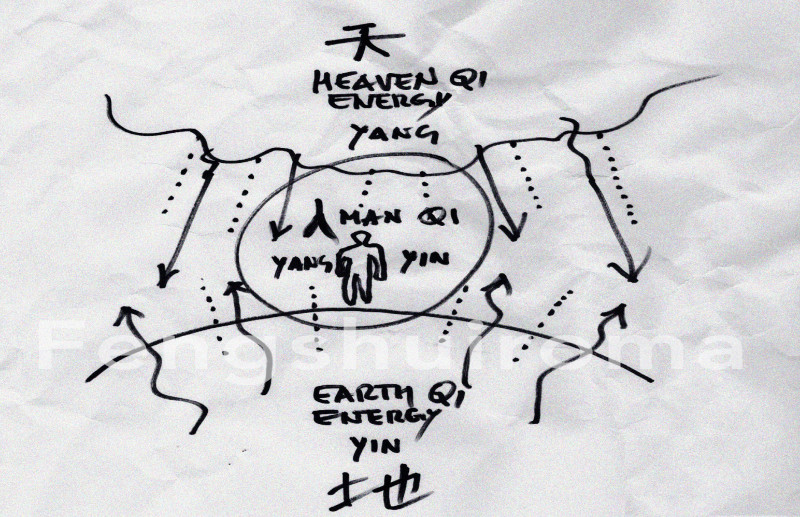 天
HEAVEN QI
ENERGY
YANG
人 MAN QI
YANG YIN
Fengshuiroma
EARTH QI
ENERGY
YIN
地